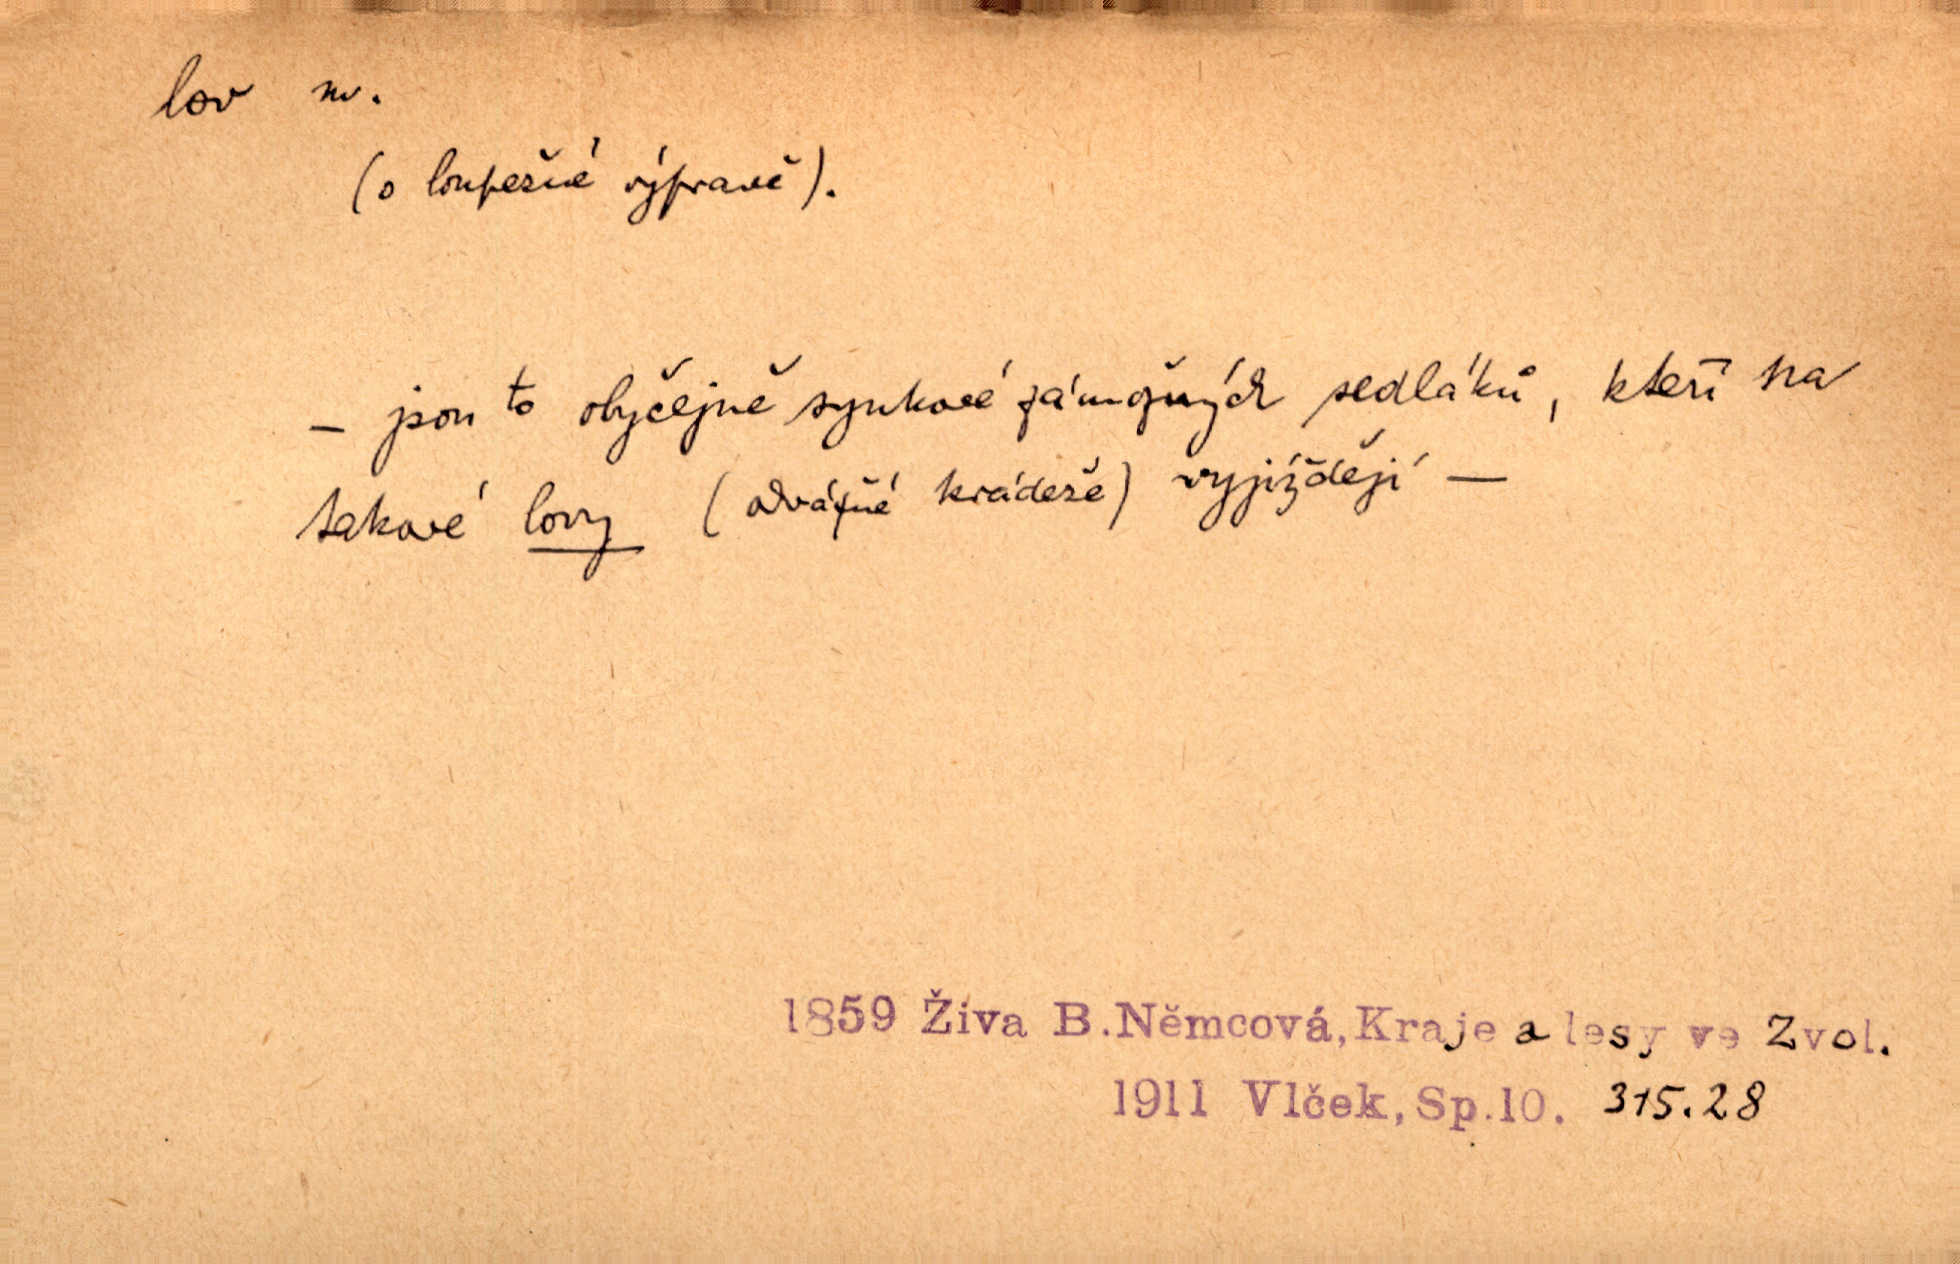 lov m.
(o loupežné výpravě).
– jsou to obyčejně synkové zámožných sedláků, kteří na
takové lovy (odvážné krádeže) vyjíždějí —
1859 Živa B.Němcová,Kraje a lesy ve Zvol.
1911 Vlček,Sp.10. 315.28